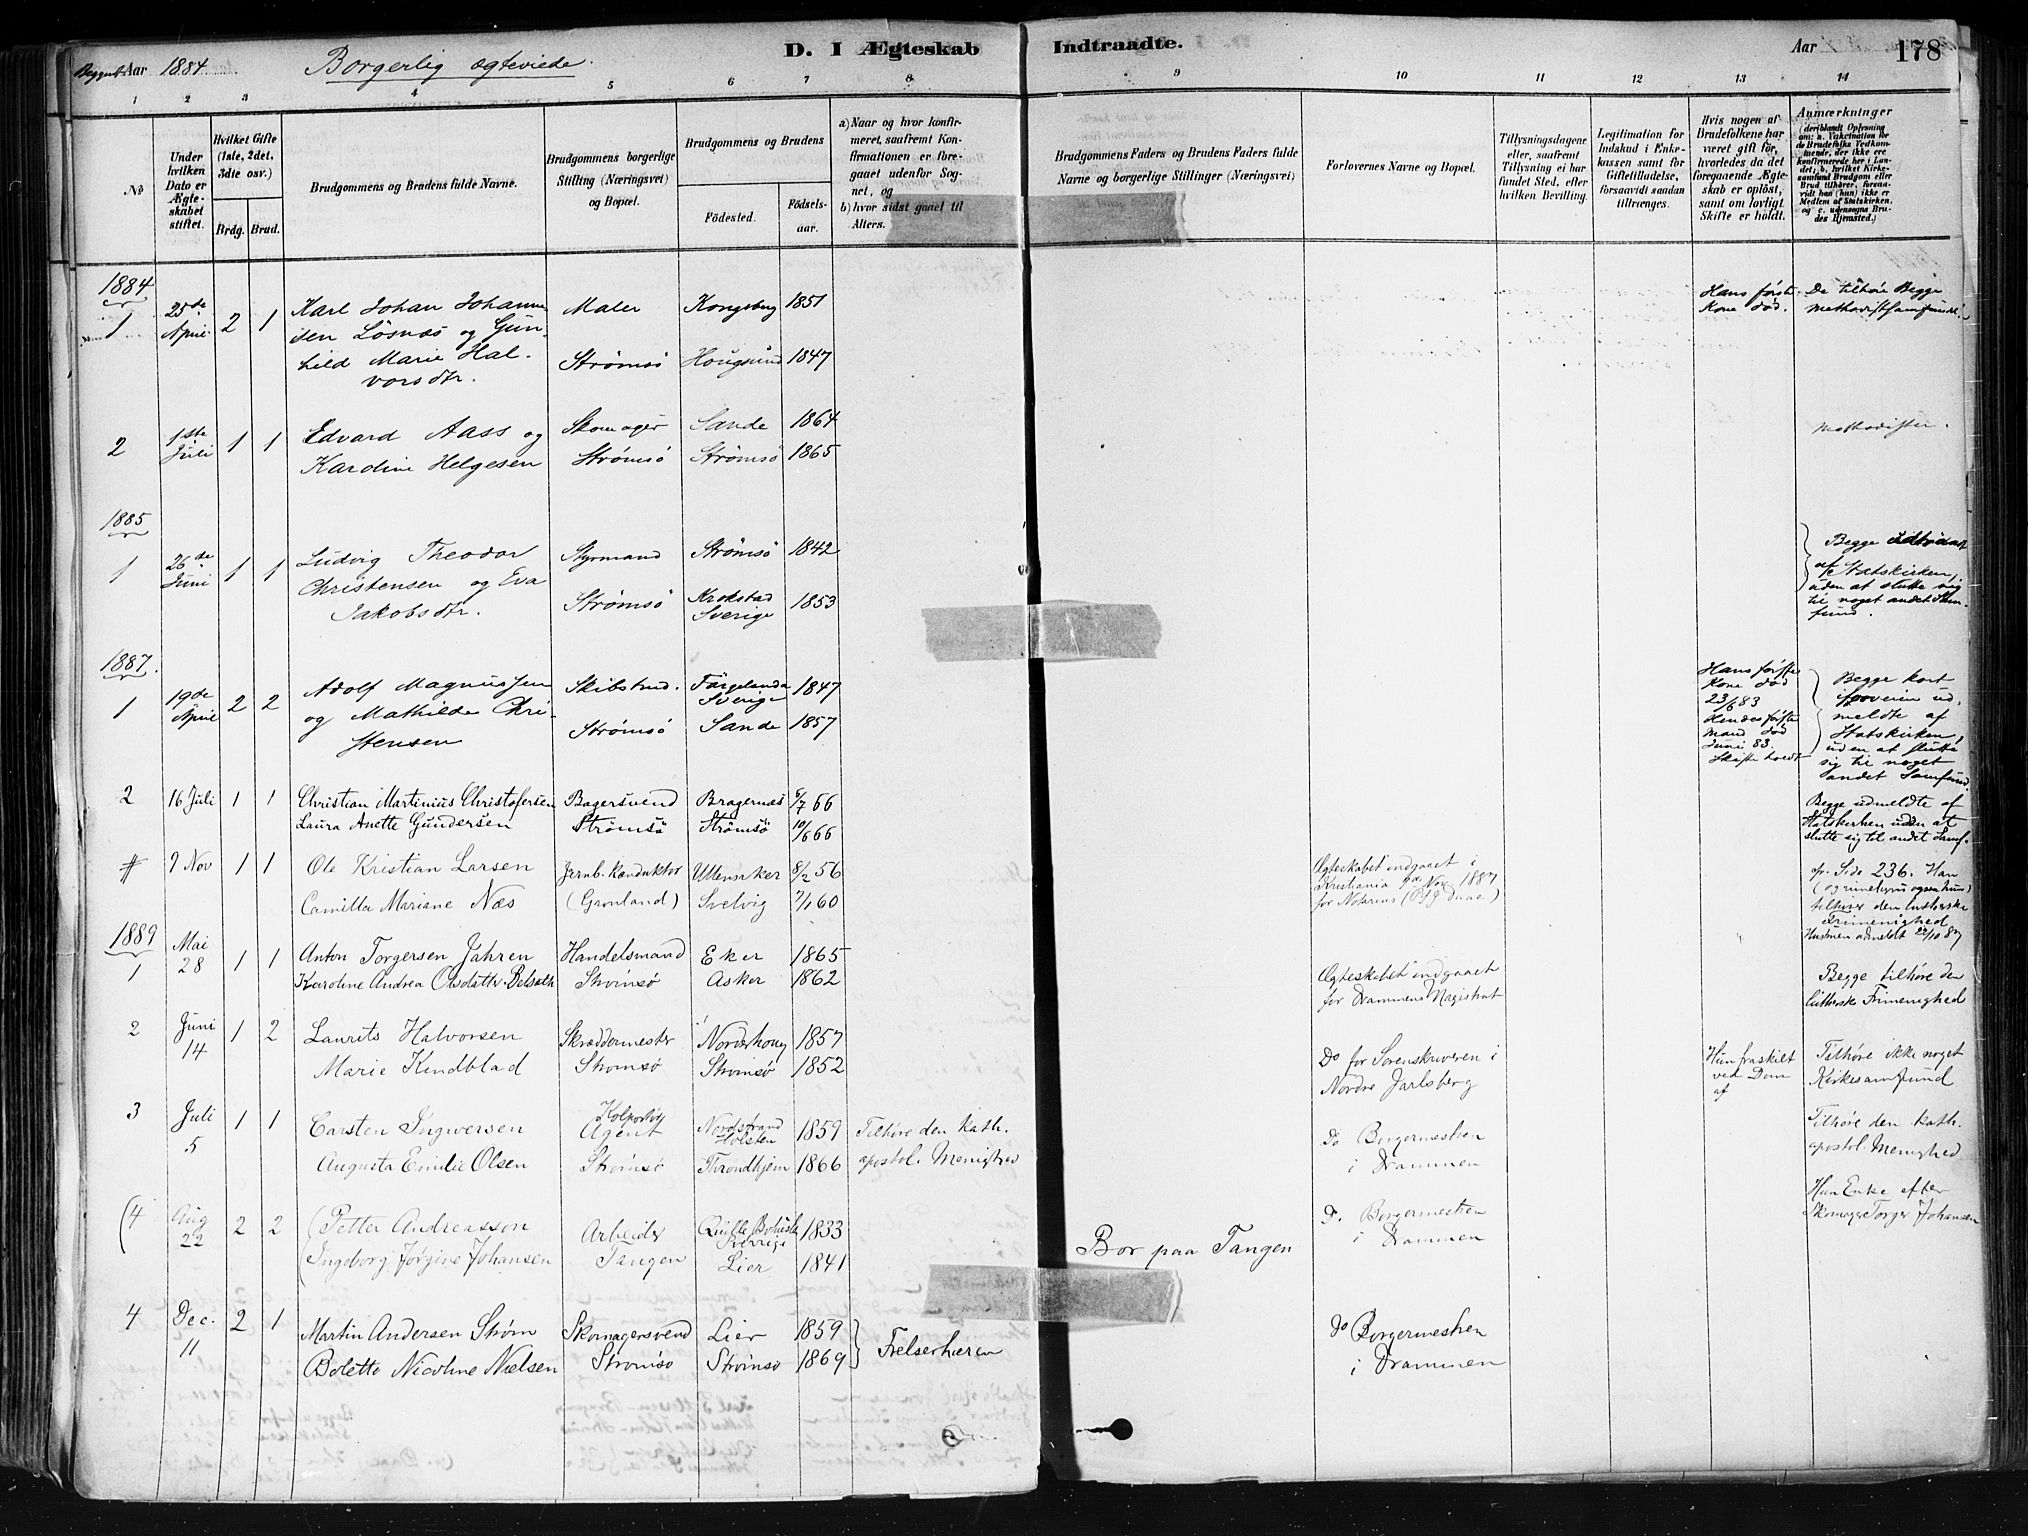 Begynt Aar 1884 Borgerlig ægteviede.
D. I Ægteskab Indtraadte.
Aar 178
1 2 3 4 5 6 7 8 9 10 11 12 13 14
No
Under hvilken Dato er Ægteskabet stiftet.
Hvilket Gifte (1ste, 2det, 3die osv.)
Brdg. Brud.
Brudgommens og Brudens fulde Navne.
Brudgommens borgerlige Stilling (Næringsvei) og Bopæl.
Brudgommens og Brudens
Födested. Födselsaar.
a) Naar og hvor konfirmeret, saafremt Konfirmationen er foregaaet udenför Sognet, og
b) hvor sidst gaaet til Alters.
Brudgommens Faders og Brudens Faders fulde Navne og borgerlige Stillinger (Næringsvei)
Forlovernes Navne og Bopæl.
Tillysningsdagene eller, saafremt Tillysning ei har fundet Sted, efter hvilken Bevilling.
Legitimation for Indskud i Enkekassen samt for Giftetilladelse, forsaavidt saadan tiltrænges.
Hvis nogen af Brudefolkene har været gift för, hvorledes da det foregaaende Ægteskab er oplöst, samt om lovligt Skifte er holdt.
Anmærkninger
(deriblandt Oplysning om: a. Vakcination for de Brudefolks Vedkommende, der ikke ere konfirmerede her i Landet; b. hvilket Kirkesamfund Brudgom eller Brud tilhörer, forsaavidt han (hun) ikke er Medlem af Statskirken, og c. udensogns Brudes Hjemsted.)
1884
1 25de April 2 1 Karl Johan Johannesen Lösnæs og Gunhild Marie Halvorsdtr. Maler Strömsö Kongsberg 1851 Hougsund 1847
Hans første Kone död.
De tilhöre Begge Methodistsamfundet.
2 1ste Juli 1 1 Edvard Aass og Karoline Helgesen Skomager Strömsö Sande 1864 Strömsö 1865
Methodister.
1885
1 26de Juni 1 1 Ludvig Theodor Christensen og Eva Jakobsdtr. Styrmand Strömsö Strömsö 1842 Krokstad Sverige 1853
Begge udtraadt af Statskirken, uden at slutte sig til noget andet Samfund.
1887.
1 19de April 2 2 Adolf Magnussen og Mathilde Christensen Skibstmd. Strömsö Färgelanda Sverige 1847 Sande 1857
Hans første Kone död 23/6 83 Hendes første Mand död Juni 83. Skifte holdt
Begge kort forveien udmeldte af Statskirken, uden at slutte sig til noget andet Samfund.
2 16 Juli 1 1 Christian Martinius Christofersen Bagersvend Bragernæs 5/7 66
Laura Anette Gundersen Strömsö Strömsö 10/6 66
Begge udmeldte af Statskirken uden at slutte sig til andet Samf.
# 7 Nov 1 1 Ole Kristian Larsen Jernb. konduktör Ullensaker 8/2 56
Camilla Mariane Næs (Grønland) Svelvig 7/1 60
Ægteskabet indgaaet i Kristiania 7de Nov 1887 for Notarius
cfr. Side 236. Han tilhører den lutherske Frimenighed Hustruen udmeldt 22/10 87
1889
1 Mai 28 1 1 Anton Torgersen Jahren Handelsmand Eker 1865
Karoline Andrea Olsdatter Belseth Strömsö Asker 1862
Ægteskabet indgaaet for Drammens Magistrat
Begge tilhöre den lutherske Frimenighed
2 Juni 14 1 2 Laurits Halvorsen Skræddermester Norderhoug 1857
Marie Kindblad Strömsö Strömsö 1852
Do for Sorenskriveren i Nordre Jarlsberg
Hun fraskilt ved Dom af
Tilhöre ikke noget Kirkesamfund
3 Juli 5 1 1 Carsten Ingwersen Kolportör Agent Nordstrand Holsten 1859
Augusta Emilie Olsen Strömsö Throndhjem 1866
Tilhöre den kath. apostol. Menighed
Do Borgermesteren i Drammen
Tilhöre den kath. apostol. Menighed
(4 Aug 22 2 2 (Petter Andreasson Arbeider Quille Bohuslen Sverrige 1833
(Ingeborg Jørgine Johansen Tangen Lier 1841
Bor paa Tangen
Do. Borgermesteren i Drammen
Hun Enke efter Skomager Torger Johansen
4 Dec. 11 2 1 Martin Andersen Strøm Skomagersvend Lier 1859
Bolette Nicoline Nielsen Strömsö Strömsö 1869
Frelserhæren
Do Borgermesteren i Drammen